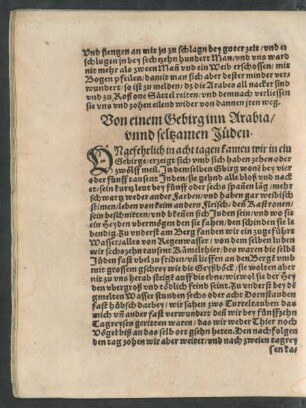 vnd fiengen an mit jn zu schlagn bey guter zeit / vnd er
schlugen jn bey sechtzehn hundert Man / vnd vns ward
nit mehr als zween Mañ vnd ein Weib erschossen / mit
Bogen pfeilen / damit man sich aber dester minder ver
wundert / so ist zu melden / dz die Araba all nackēt sind
vnd zu Roß one Sättel reiten / vnd demnach verliessen
sie vns vnd zohen eilend wider von dannen jren weg.
Von einem Gebirg inn Arabia /
vnnd seltzamen Jüden.
VNgefehrlich in acht tagen kamen wir in ein
Gebirge / erzeigt sich vmb sich haben zehen oder
zwölff meil. In demselben Gebirg woni bey vier
oder fünff tausent Jüden / sie gehnd alle bloß vnd nack
et / sein kurtz leut bey fünff oder sechs spañen läg / mehr
schwartz weder ander Farben / vnd haben gar weibisch
stimen / leben von keim andern Fleisch / deñ Kastronen /
sein beschnitten / vnd bekeñen sich Jüden sein / vnd wo sie
ein Heyden vbermögen den sie fahen / den schinden sie le
bendig. Zu vnderst am Berg fanden wir ein zugeführt
Wasser / alles von Regenwasser / von dem selben luden
wir sechszehn tausent Kämelthier / des waren die selbē
Jüden fast vbel zu friden / vñ lieffen an dem Berge vmb
mit grossem gschrey wie die Geyßböck / sie wolten aber
nit zu vns herab / steigt auff die ebne / wiewol sie der Hey
den vbergroß vnd tödlich feind seint. Zu vnderst bey dē
gmelten Wasser stunden sechs oder acht Dornstauden
fast hübsch darbey / wir sahen zwo Turteltauben das
mich vñ ander fast verwundert deñ wir bey fünffzehn
Tagreysen geritten waren / das wir weder Thier noch
Vögel biß an das selb ort gsehn heten. Den nachfolgen
den tag zohen wir aber weiter / vnd nach zweien tagrey
sen ka